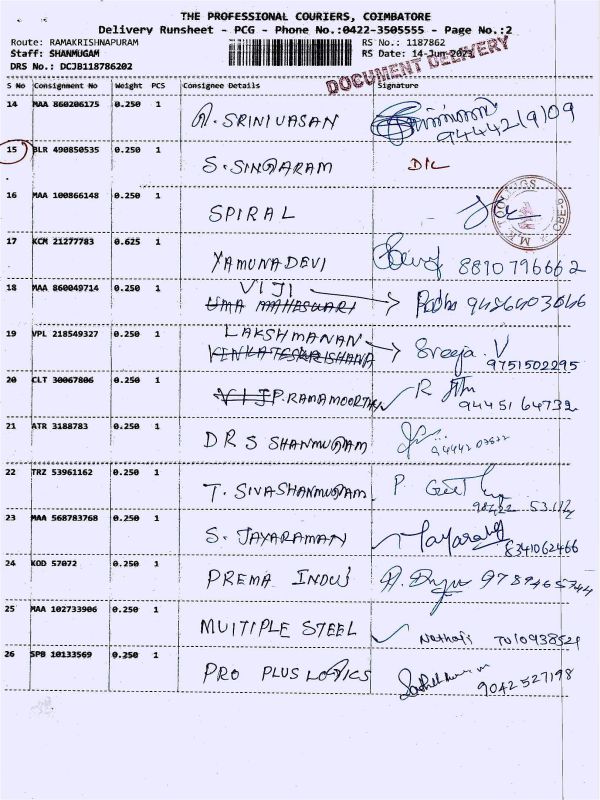 THE PROFESSIONAL COURIERS, COIMBATORE
Delivery Runsheet - PCG - Phone No.:0422-3505555 - Page No.:2
Route: RAMAKRISHNAPURAM RS No.: 1187862
Staff: SHANMUGAM RS Date: 14-Jun-2023
DRS No.: DCJB118786202
DOCUMENT DELIVERY
S No Consignment No Weight PCS Consignee Details Signature
14 MAA 860206175 0.250 1 A. SRINIVASAN 9444219109
15 BLR 490850535 0.250 1 S. SINGARAM D/L
16 MAA 100866148 0.250 1 SPIRAL
17 KCM 21277783 0.625 1 YAMUNADEVI 8810796662
18 MAA 860049714 0.250 1 VIJI Radha
UMA MAHESWARI
19 VPL 218549327 0.250 1 LAKSHMANAN Sreeja. V
VENKATESKRISHANA 9751502295
20 CLT 30067806 0.250 1 VIJI P. RAMAMOORTHY R 9445164732
21 ATR 3188783 0.250 1 DRS SHANMUGAM
22 TRZ 53961162 0.250 1 T. SIVASHANMUGAM P.
23 MAA 568783768 0.250 1 S. JAYARAMAN 8341062466
24 KOD 57072 0.250 1 PREMA INDUS
25 MAA 102733906 0.250 1 MUITIPLE STEEL Nethaji
26 SPB 10133569 0.250 1 PRO PLUS LOGICS 9042527198